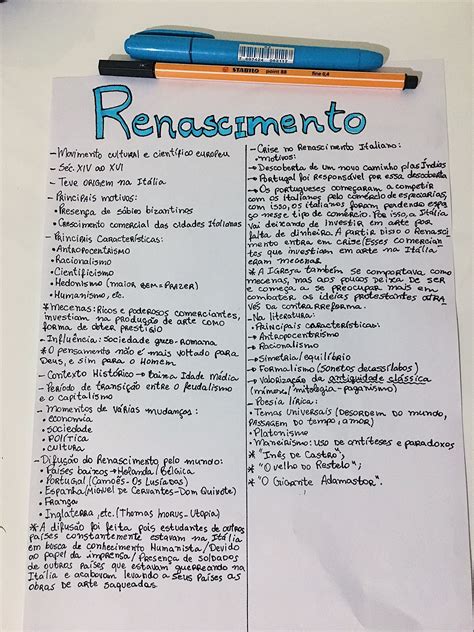 STABILO point 88 fine 0,4
Renascimento
- Movimento cultural e científico europeu
- Séc. XIV ao XVI
- Teve origem na Itália
- Principais motivos:
• Presença de sábios bizantinos
• Crescimento comercial das cidades Italianas
- Principais Características:
• Antropocentrismo
• Racionalismo
• Cientificismo
• Hedonismo (maior bem = prazer)
• Humanismo, etc.
* Mecenas: Ricos e poderosos comerciantes,
investiam na produção de arte como
forma de obter prestígio
- Influência: sociedade greco-romana
* O pensamento não é mais voltado para
Deus, e sim para o Homem
- Contexto Histórico → Baixa Idade Média
- Período de transição entre o feudalismo
e o capitalismo
- Momentos de várias mudanças:
• economia
• sociedade
• política
• cultura
- Difusão do Renascimento pelo mundo:
• Países baixos → Holanda/Bélgica
• Portugal (Camões- Os Lusíadas)
• Espanha (Miguel de Cervantes- Dom Quixote)
• França
• Inglaterra, etc. (Thomas Morus- Utopia)
* A difusão foi feita pois estudantes de outros
países constantemente estavam na Itália
em busca de conhecimento Humanista/Devido
ao papel da imprensa/Presença de soldados
de outros países que estavam guerreando na
Itália e acabavam levando a seus países as
obras de arte saqueadas.
- Crise no Renascimento Italiano:
• motivos:
→ Descoberta de um novo caminho p/as Índias
→ Portugal foi responsável por essa descoberta
→ Os portugueses começaram a competir
com os italianos pelo comércio de especiarias,
com isso, os italianos foram perdendo espaço
nesse tipo de comércio. Por isso, a Itália
vai deixando de investir em arte por
falta de dinheiro. A partir disso o Renasci
mento entra em crise (Esses comercian
tes que investiam em arte na Itália
eram mecenas.
* A Igreja também se comportava como
mecenas, mas aos poucos deixa de ser
e começa a se preocupar mais em
combater as ideias protestantes atra
vés da contrarreforma.
- Na literatura:
• Principais características:
→ Antropocentrismo
→ Racionalismo
→ Simetria/equilíbrio
→ Formalismo (sonetos decassílabos)
→ Valorização da antiguidade clássica
(mímese/mitologia - paganismo)
- Poesia lírica:
• Temas universais (desordem do mundo,
passagem do tempo, amor)
• Platonismo
• Maneirismo: uso de antíteses e paradoxos
* "Inês de Castro";
* "O velho do Restelo";
* "O Gigante Adamastor".